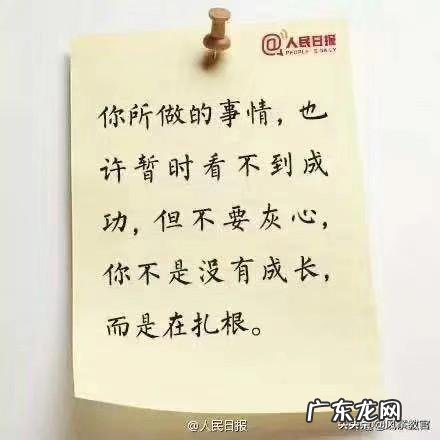 @人民日报
PEOPLE'S DAILY
你所做的事情，也
许暂时看不到成
功，但不要灰心，
你不是没有成长，
而是在扎根。
@人民日报
广东龙网